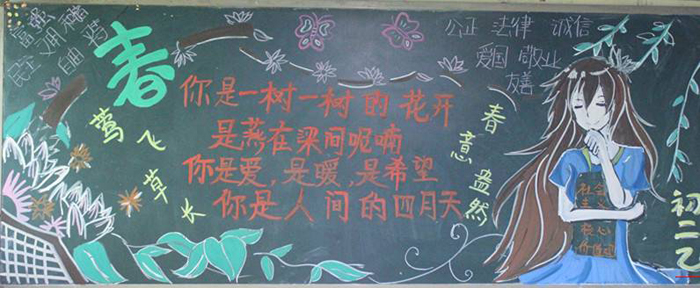 富强
民主
自由
春
莺飞草长
你是一树一树的花开
是燕在梁间呢喃
你是爱,是暖,是希望
你是人间的四月天
春意盎然
公正 法律 诚信
爱国 敬业
友善
社会
主义
核心
价值观
初二乙